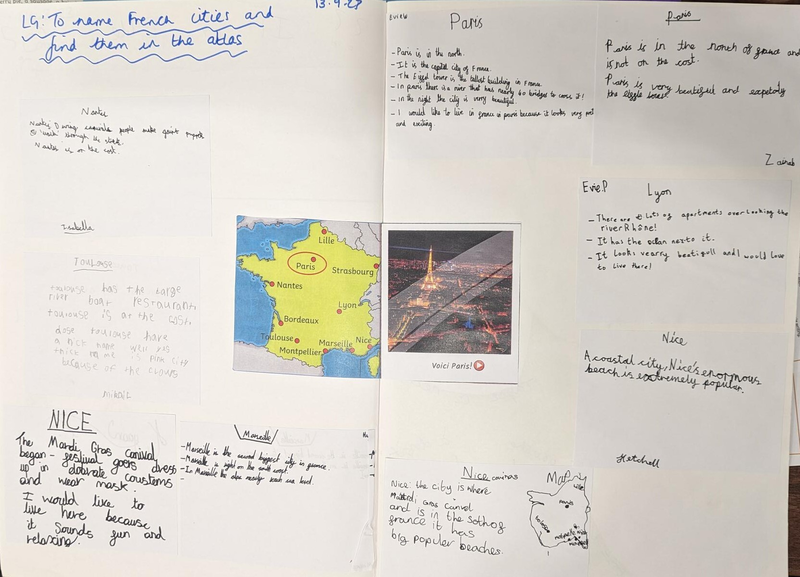 LG: To name French cities and
find them in the atlas
13.9.23
Nantes
Nantes During people make giant
through the
Nantes is on the cost.
Isabella
Toulouse
toulouse has the large
river boat restaurants
toulouse is at the
dose toulouse have
a nick name well yes
because of the
mikail
NICE
The Mardi Gras canival
began - festival goers dress
up in
and wear mask.
I would like to
live here because
it sounds fun and
relaxing.
Marseille
- Marseille is the second biggest city in france.
- Marseille is right on the south coast.
- In Marseille the
Lille
Paris
Strasbourg
Nantes
Lyon
Bordeaux
Toulouse
Montpellier
Marseille
Nice
Voici Paris!
Paris
- Paris is in the north.
- It is the capital city of France.
- The Eiffel tower is the tallest building in France.
- In paris there is a river that has nearly 40 bridges to cross it!
- in the night the city is very beautiful
- I would like to live in france in paris because it looks very
and exciting
Paris
Paris is in the north of france and
is not on the cost.
Paris is very beatiful and
the
Zainab
Evie.P
Lyon
- There are lots of apartments overlooking the
river Rhône!
- It has the ocean next to it.
- It looks vearry beatigull and I would love
to live there!
Nice
A coastal city, Nice's enormous
beach is extremely popular.
Nice
Nice the city is where
gras canvol
and is in the soth of
france it has
big popular beaches.
Map